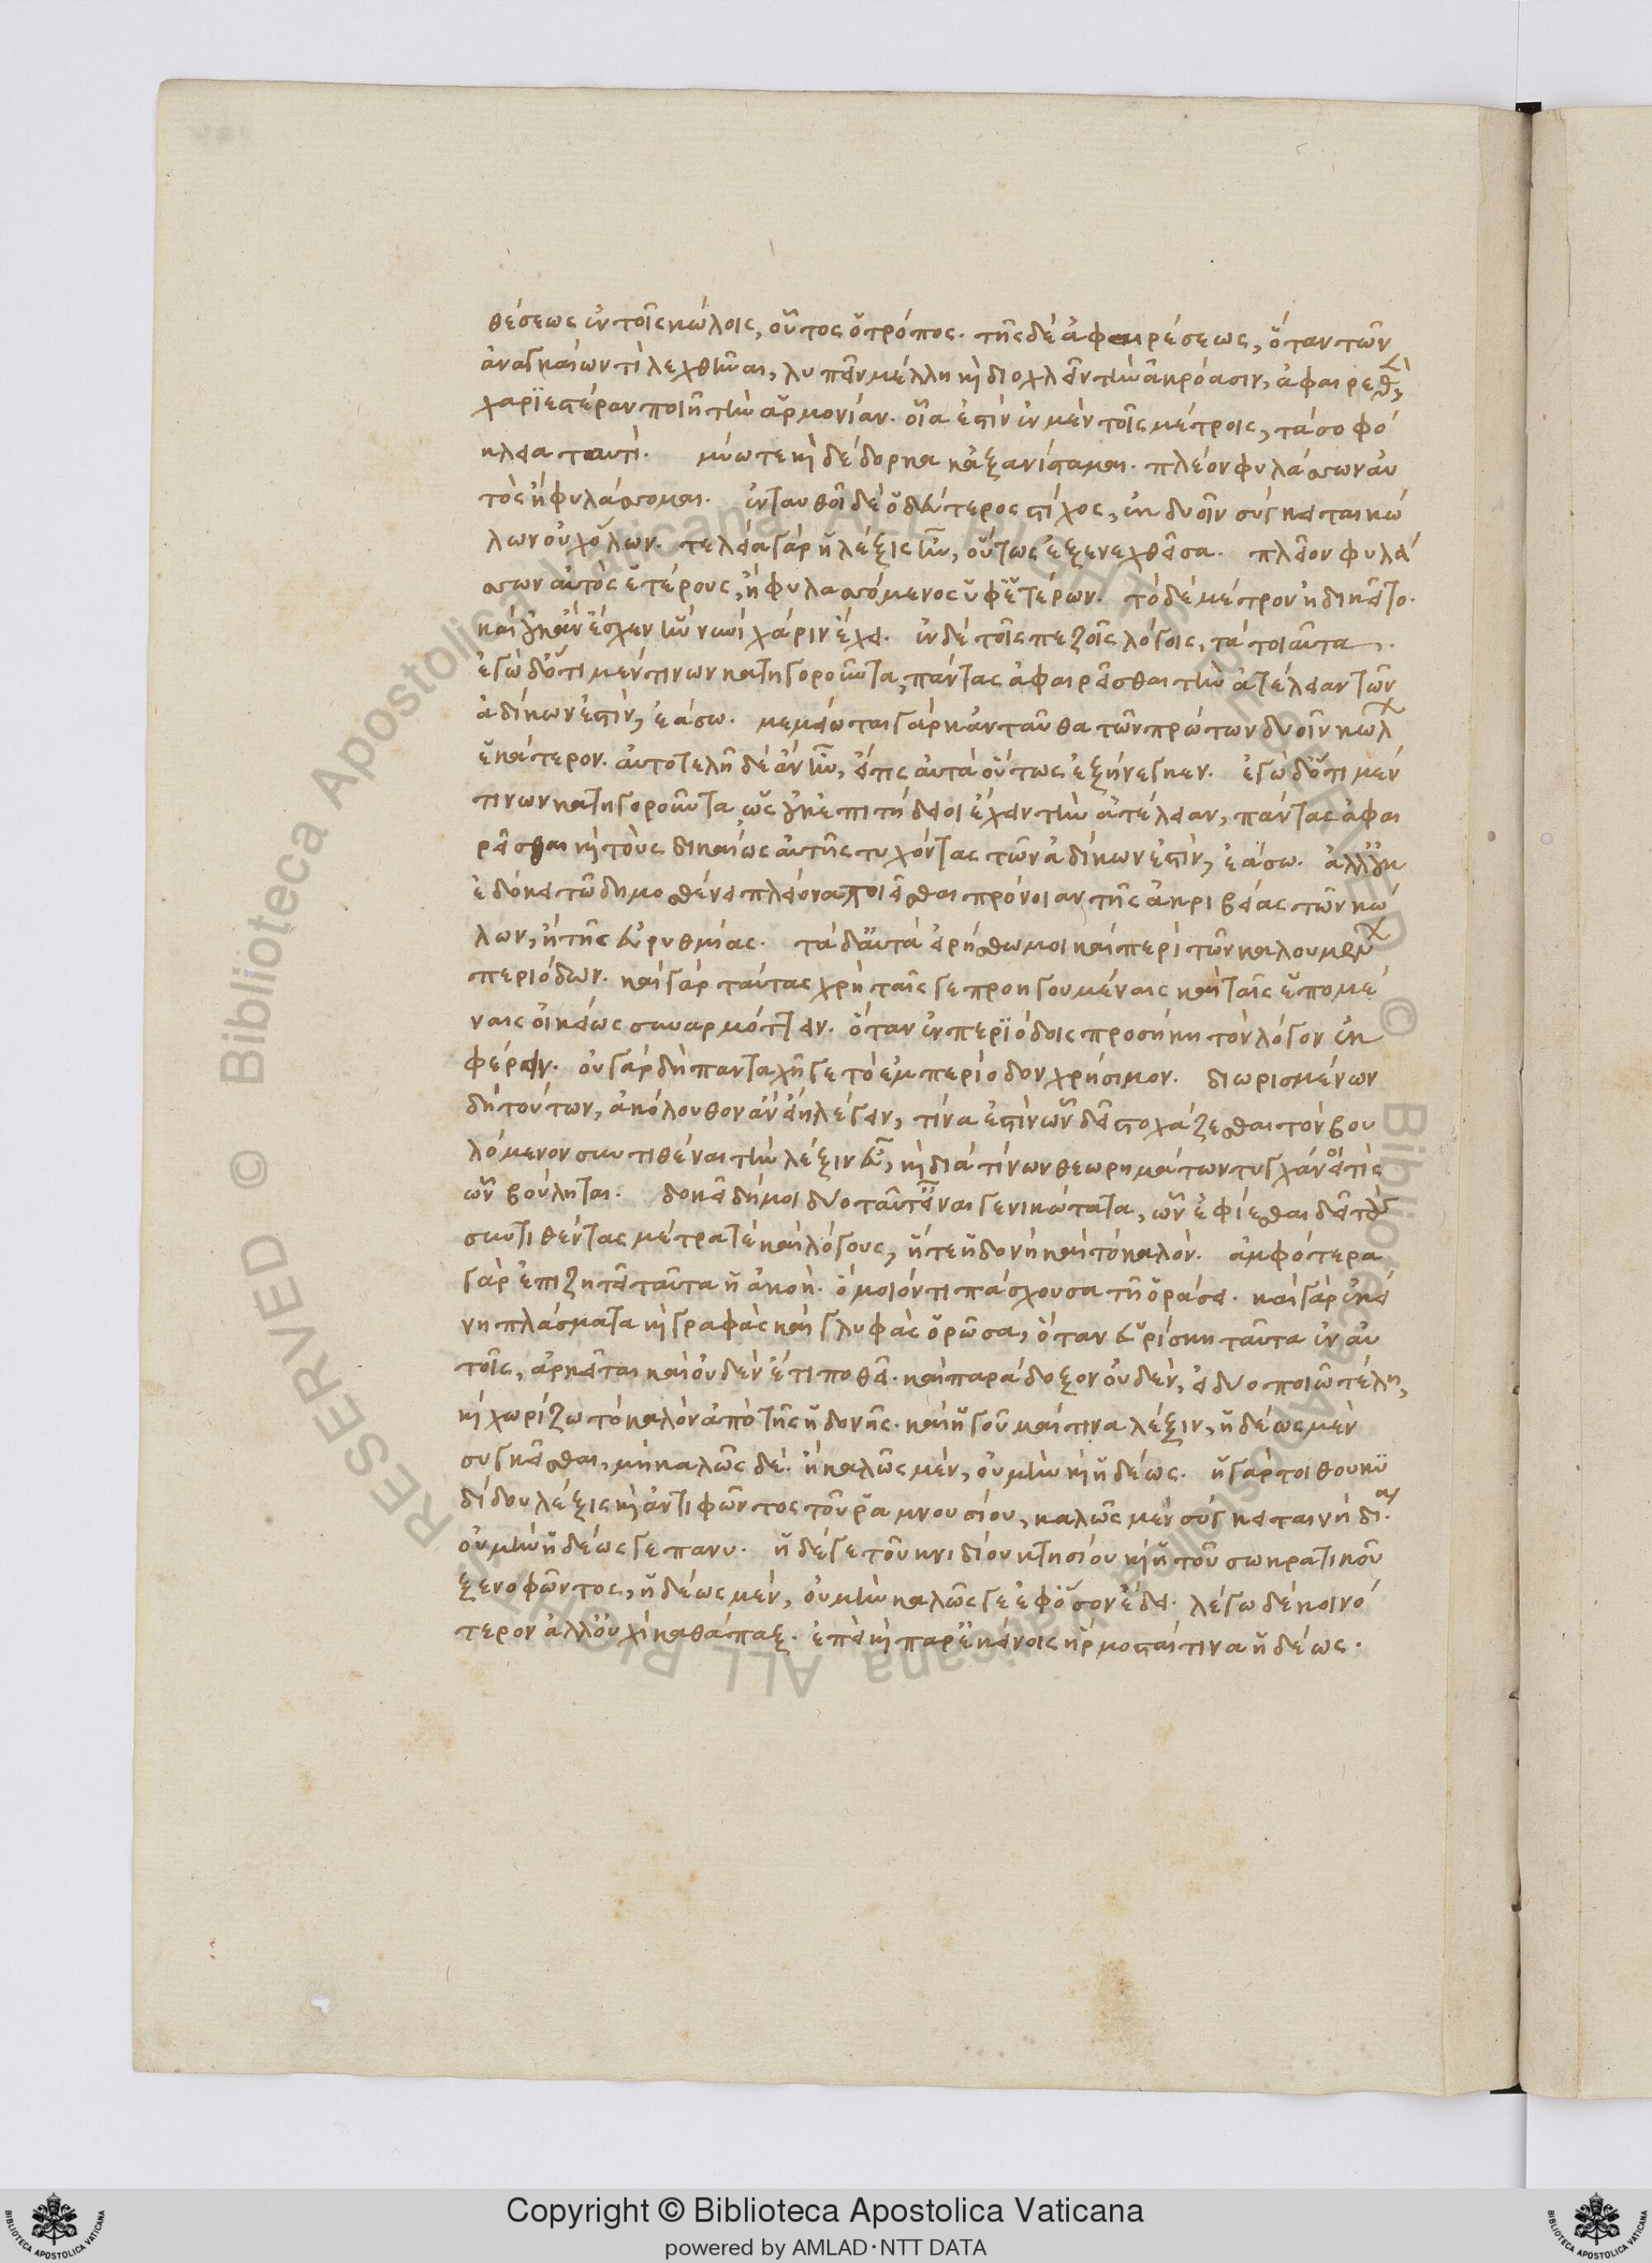 θέσεως ἐν τοῖς κώλοις, οὗτος ὁ τρόπος. τῆς δὲ ἀφαιρέσεως, ὅταν τῶν
ἀναγκαίων τὶ λεχθῆναι, λυπεῖν μέλλῃ κὴ διοχλεῖν τὴν ἀκρόασιν, ἀφαιρεθὲν
χαριεστέραν ποιῇ τὴν ἁρμονίαν. οἷα ἐστὶν ἐν μὲν τοῖς μέτροις, τὰ σοφό
κλεια ταυτί. μύω τε κὴ δέδορκα κἀξανίσταμαι. πλέον φυλάσσων αὐ
τὸς ἢ φυλάσσομαι. ἐνταυθοῖ δὲ ὁ δεύτερος στίχος, ἐκ δυοῖν σύγκειται κώ
λων οὐχ ὅλων. τελεία γὰρ ἡ λέξις ἦν, οὕτως ἐξενεχθεῖσα. πλεῖον φυλά
σσων αὐτὸς ἑτέρους, ἢ φυλασσόμενος ὑφ' ἑτέρων. τὸ δὲ μέτρον ἠδικεῖτο.
καὶ οὐκ ἂν ἔσχεν ἣν νυνὶ χάριν ἔχει. ἐν δὲ τοῖς πεζοῖς λόγοις, τὰ τοιαῦτα.
ἐγὼ δ' ὅτι μέν τινων κατηγοροῦντα, πάντας ἀφαιρεῖσθαι τὴν ἀτέλειαν τῶν
ἀδίκων ἐστὶν, ἐάσω. μεμείωται γὰρ κἀνταῦθα τῶν πρώτων δυοῖν κώλων
ἑκάτερον. αὐτοτελῆ δὲ ἂν ἦν, εἴ τις αὐτὰ οὕτως ἐξήνεγκεν. ἐγὼ δ' ὅτι μέν
τινων κατηγοροῦντα ὡς οὐκ ἐπιτήδειοι ἔχειν τὴν ἀτέλειαν, πάντας ἀφαι
ρεῖσθαι κὴ τοὺς δικαίως αὐτῆς τυχόντας τῶν ἀδίκων ἐστὶν, ἐάσω. ἀλλ' οὐκ
ἐδόκει τῷ δημοσθένει πλείονα ποιεῖσθαι πρόνοιαν τῆς ἀκριβείας τῶν κώ
λων, ἢ τῆς εὐρυθμίας. τὰ δ' αὐτὰ εἰρήσθω μοι καὶ περὶ τῶν καλουμένων
περιόδων. καὶ γὰρ ταύτας χρὴ ταῖς γε προηγουμέναις καὶ ταῖς ἑπομέ
ναις οἰκείως συναρμόττειν. ὅταν ἐν περιόδοις προσήκῃ τὸν λόγον ἐκ
φέρειν. οὐ γὰρ δὴ πανταχῆ γε τὸ ἐμπερίοδον χρήσιμον. διωρισμένων
δὴ τούτων, ἀκόλουθον ἂν εἴη λέγειν, τίνα ἐστὶν ὧν δεῖ στοχάζεσθαι τὸν βου
λόμενον συντιθέναι τὴν λέξιν εὖ, κὴ διὰ τίνων θεωρημάτων τυγχάνοι τὶς
ὧν βούληται. δοκεῖ δή μοι δύο ταῦτ' εἶναι γενικώτατα, ὧν ἐφίεσθαι δεῖ τοὺς
συντιθέντας μέτρα τὲ καὶ λόγους, ἥ τε ἡδονὴ καὶ τὸ καλόν. ἀμφότερα
γὰρ ἐπιζητεῖ ταῦτα ἡ ἀκοή. ὅμοιόν τι πάσχουσα τῇ ὁράσει. καὶ γὰρ ἐκεί
νη πλάσματα κὴ γραφὰς καὶ γλυφὰς ὁρῶσα, ὅταν εὑρίσκῃ ταῦτα ἐν αὐ
τοῖς, ἀρκεῖται καὶ οὐδὲν ἔτι ποθεῖ. καὶ παράδοξον οὐδὲν, εἰ δύο ποιῶ τέλη,
κὴ χωρίζω τὸ καλὸν ἀπὸ τῆς ἡδονῆς. καὶ ἡγοῦμαί τινα λέξιν, ἡδέως μὲν
συγκεῖσθαι, μὴ καλῶς δέ. ἢ καλῶς μὲν, οὐ μὴν κὴ ἡδέως. ἡ γάρ τοι θουκυ
δίδου λέξις κὴ ἀντιφῶντος τοῦ ῥαμνουσίου, καλῶς μὲν σύγκειται νὴ δία.
οὐ μὴν ἡδέως γε πάνυ. ἡ δέ γε τοῦ κνιδίου κτησίου κὴ ἡ τοῦ σωκρατικοῦ
ξενοφῶντος, ἡδέως μὲν, οὐ μὴν καλῶς γε ἐφ' ὅσον ἔδει. λέγω δὲ κοινό
τερον ἀλλ' οὐχὶ καθάπαξ. ἐπεὶ κὴ παρ' ἐκείνοις ἥρμοσταί τινα ἡδέως.
Copyright © Biblioteca Apostolica Vaticana
powered by AMLAD·NTT DATA